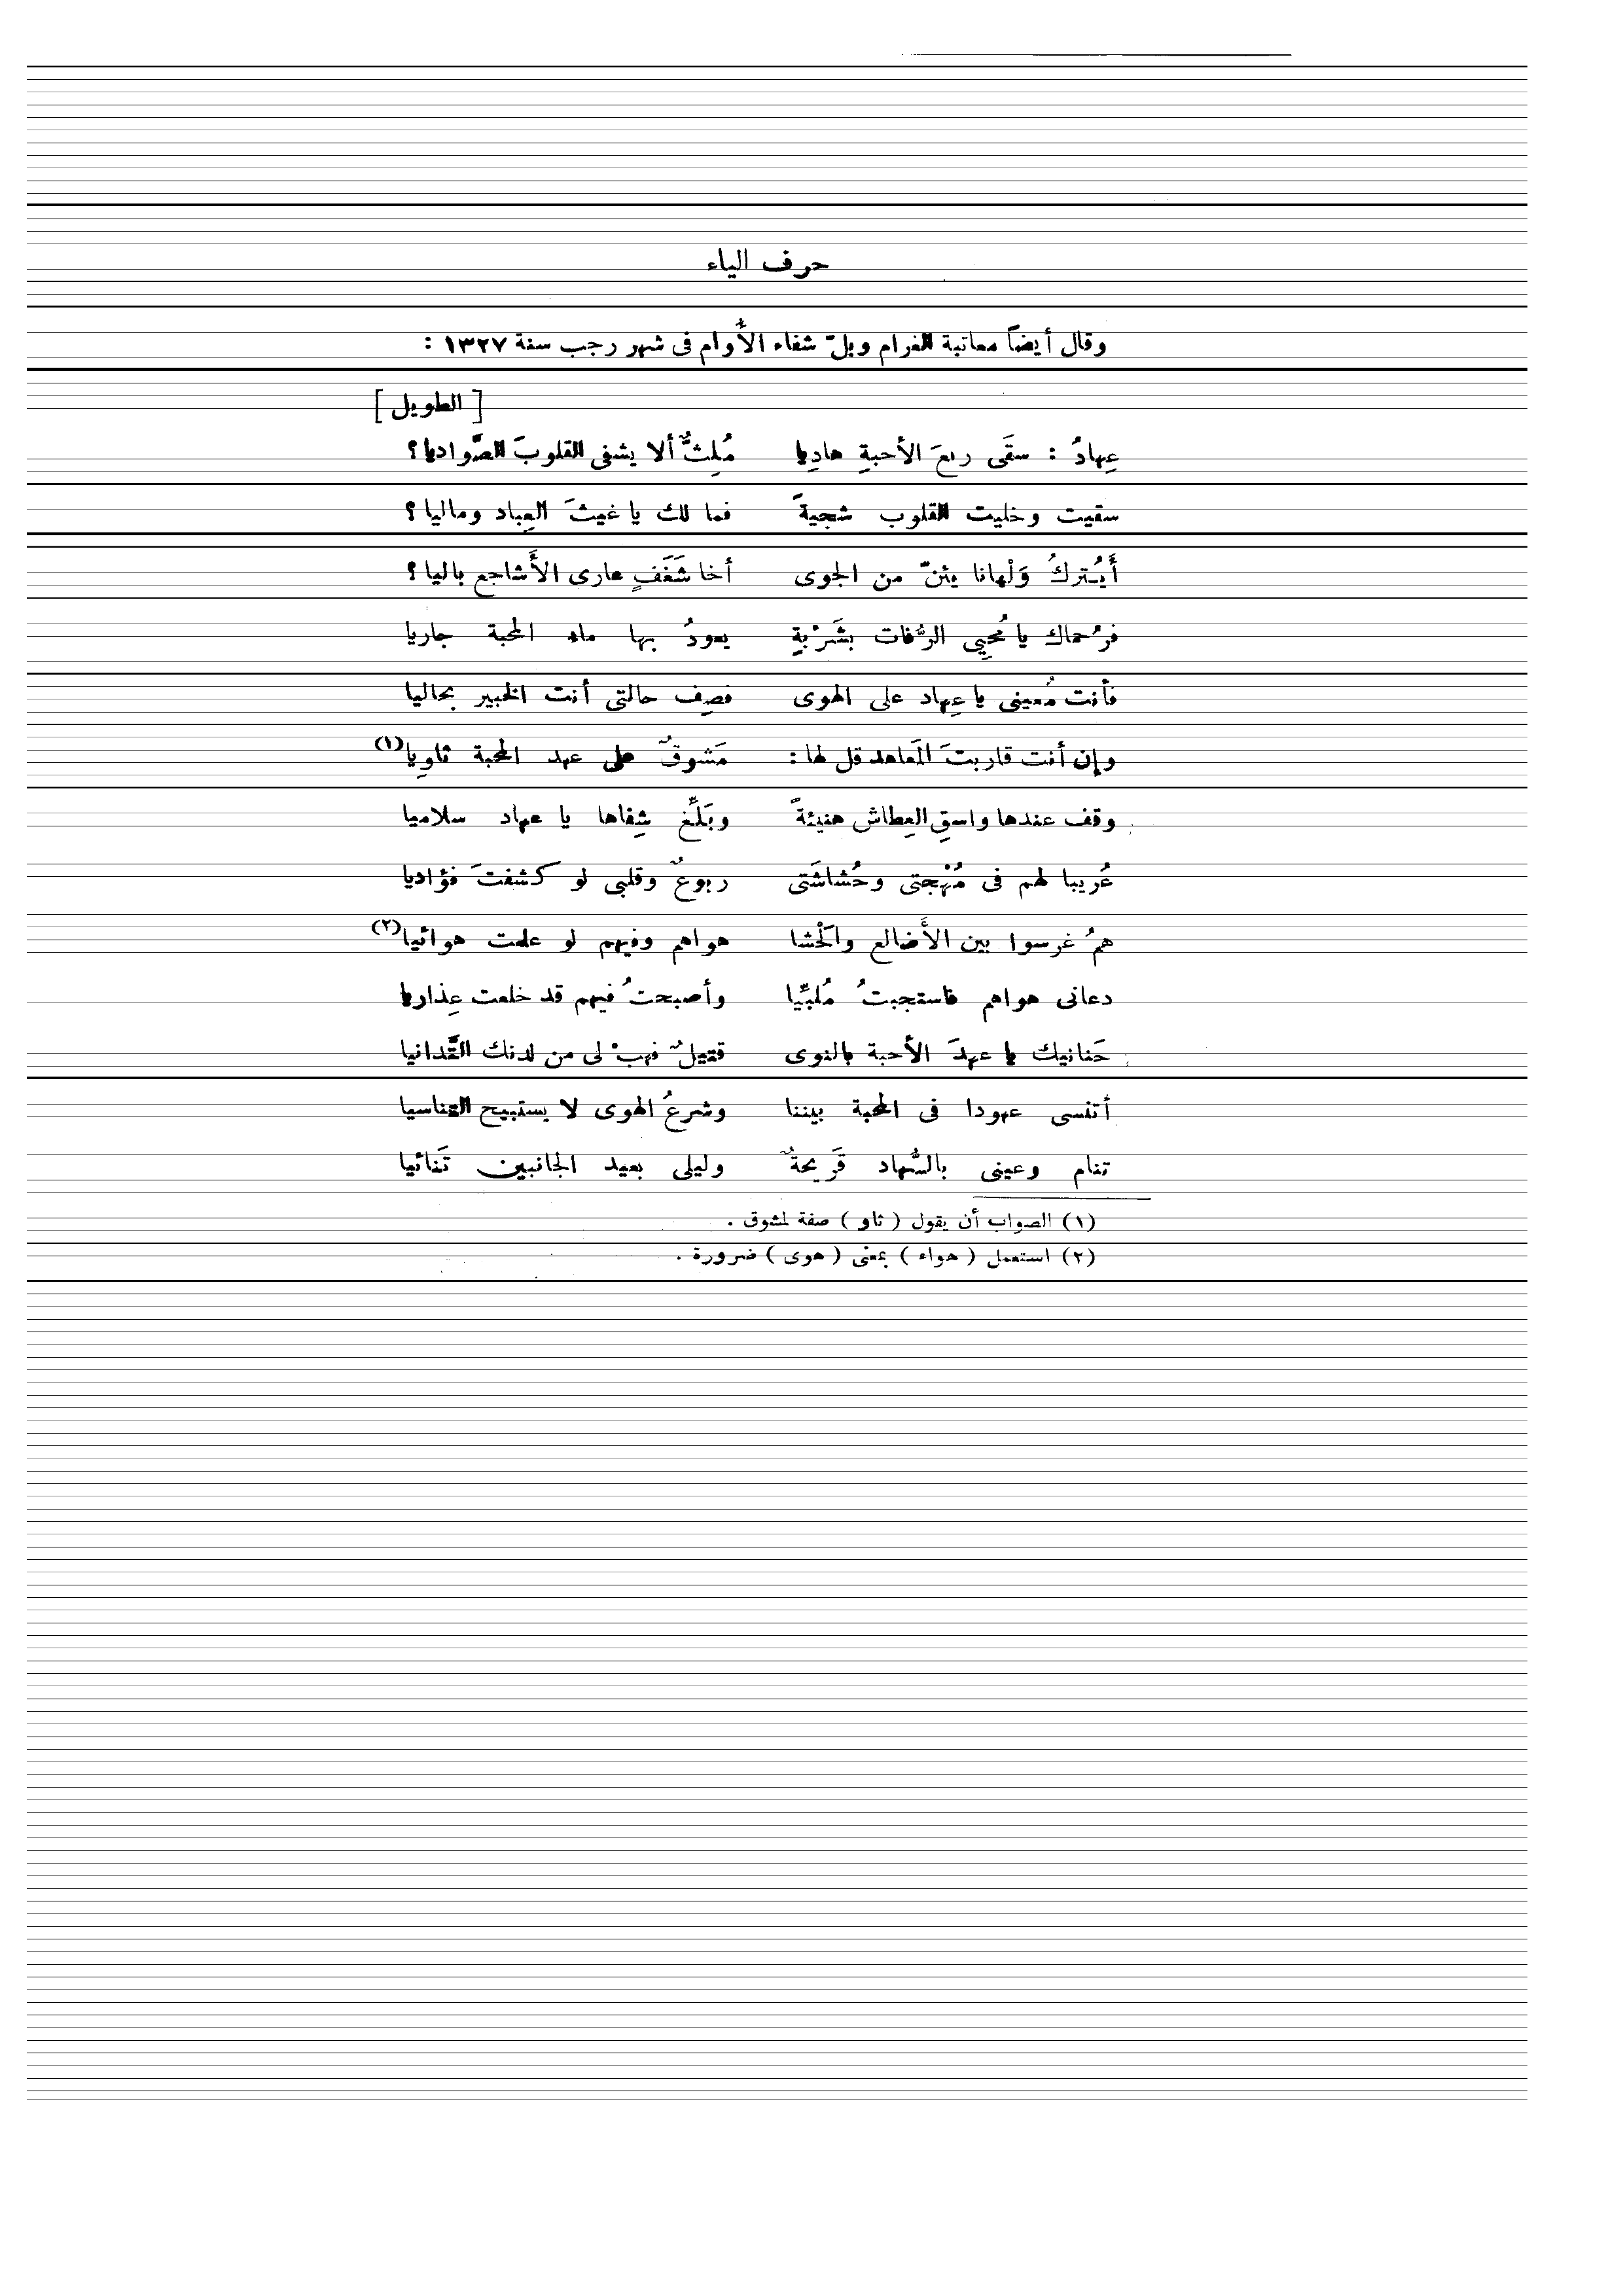 حرف الياء
وقال أيضاً معاتبة الغرام وبلّ شفاء الأُوام فى شهر رجب سنة ١٣٢٧ :
[ الطويل ]
عِهادُ : سقَى ربعَ الأحبةِ هادِيا مُلِثٌّ ألا يشفى القلوبَ الصَّواديا ؟
سقيت وخليت القلوب شجيةً فما لك يا غيثَ العِباد وماليا ؟
أَيُتركُ وَلْهانا يئنّ من الجوى أخا شَغَفٍ عارى الأَشاجع باليا ؟
فرُحماك يا مُحيِى الرُّفات بشَرْبةٍ يعودُ بها ماء المحبة جاريا
فأنت مُعينى يا عِهاد على الهوى فصِف حالتى أنت الخبير بحاليا
وإن أنت قاربتَ المَعاهد قل لها : مَشوقٌ على عهد المحبة ثاوِيا(١)
وقف عندها واسقِ العِطاش هنيئةً وبَلِّغ شِفاها يا عهاد سلاميا
عُريبا لهم فى مُهْجتى وحُشاشَتى ربوعٌ وقلبى لو كشفتَ فؤاديا
همُ غرسوا بين الأَضالع والَحْشا هواهم وفيهم لو علمت هوائيا(٢)
دعانى هواهم فاستجبتُ مُلبِّيا وأصبحتُ فيهم قد خلعت عِذاريا
حَنانيك يا عهدَ الأحبة بالنوى قتيلٌ فهبْ لى من لدنك التَّدانيا
أتنسى عهودا فى المحبة بيننا وشرعُ الهوى لا يستبيح التناسيا
تنام وعينى بالسُّهاد قَريحةٌ وليلى بعيد الجانبين تَنائيا
(١) الصواب أن يقول ( ثاو ) صفة لمشوق .
(٢) استعمل ( هواء ) بمعنى ( هوى ) ضرورة .